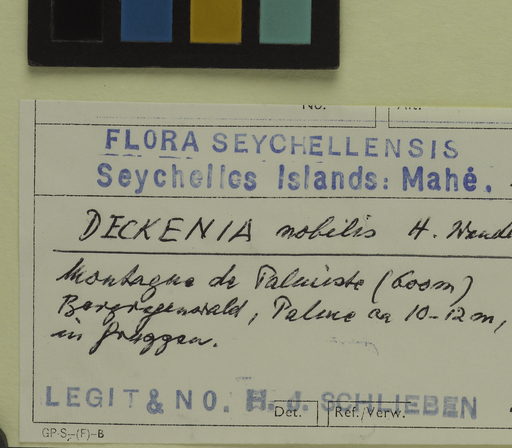 No. Alt.
FLORA SEYCHELLENSIS
Seychelles Islands: Mahé.
DECKENIA nobilis H. Wendl
Montagne de Palmiste (600m)
Bergregenwald, Palme ca 10-12 m,
in Gruppen.
LEGIT & NO. H. J. SCHLIEBEN
Det. Ref./Verw.
GP-S,-(F)-B